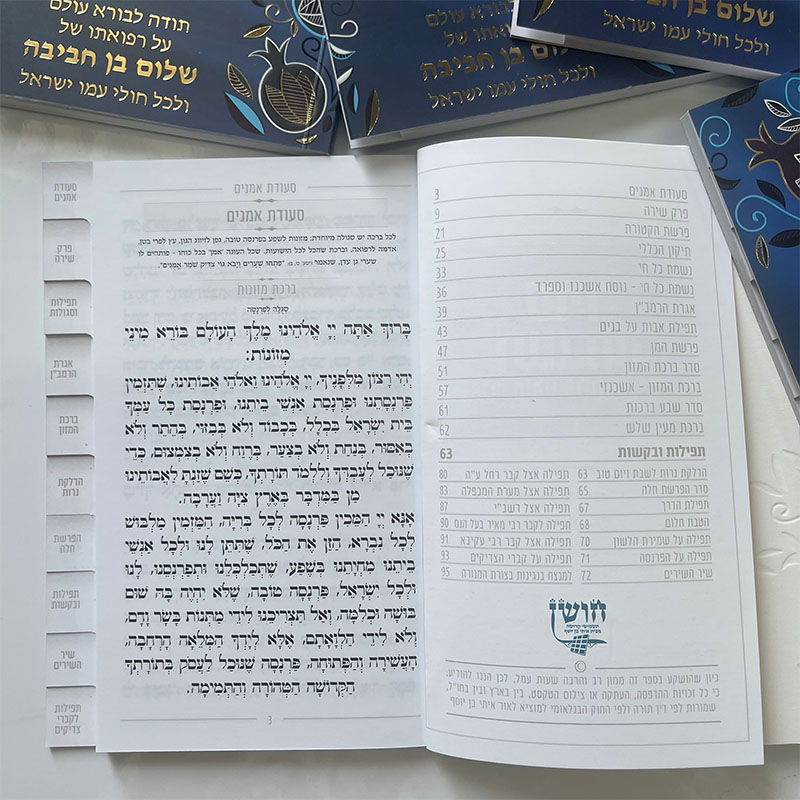 תודה לבורא עולם
על רפואתו של
שלום בן חביבה
ולכל חולי עמו ישראל
על רפואתו של
שלום בן חביבה
ולכל חולי עמו ישראל
שלום בן חביבה
ולכל חולי עמו ישראל
סעודת אמנים 3
פרק שירה 9
פרשת הקטורת 21
תיקון הכללי 25
נשמת כל חי 33
נשמת כל חי - נוסח אשכנז וספרד 36
אגרת הרמב"ן 39
תפילת אבות על בנים 43
פרשת המן 47
סדר ברכת המזון 51
ברכת המזון - אשכנזי 57
סדר שבע ברכות 61
ברכת מעין שלש 62
תפילות ובקשות 63
הדלקת נרות לשבת ויום טוב 63
סדר הפרשת חלה 65
תפילת הדרך 67
הטבת חלום 68
תפילה על שמירת הלשון 70
תפילה על הפרנסה 71
שיר השירים 72
תפילה אצל קבר רחל ע"ה 80
תפילה אצל מערת המכפלה 83
תפילה אצל רשב"י 87
תפילה לקבר רבי מאיר בעל הנס 90
תפילה אצל קבר רבי עקיבא 91
תפילה על קברי הצדיקים 93
למנצח בנגינות בצורת המנורה 95
חושן
תשמישי קדושה
מבית איתי בן יוסף
©
כיון שהושקע בספר זה ממון רב והרבה שעות עמל, לכן הננו להודיע,
כי כל זכויות ההדפסה, העתקה או צילום הטקסט, בין בארץ ובין בחו"ל,
שמורות לפי דין תורה ולפי החוק הבנלאומי למוציא לאור איתי בן יוסף
סעודת אמנים
סעודת אמנים
לכל ברכה יש סגולה מיוחדת: מזונות לשפע בפרנסה טובה, גפן לזיווג הגון, עץ לפרי בטן,
אדמה לרפואה, וברכת שהכל לכל הישועות. שכל העונה 'אמן' בכל כוחו - פותחים לו
שערי גן עדן, שנאמר "פִּתְחוּ שְׁעָרִים וְיָבֹא גוֹי צַדִּיק שֹׁמֵר אֱמֻנִים".
ברכת מזונות
סגֻלה לפרנסה
בָּרוּךְ אַתָּה יְיָ אֱלֹהֵינוּ מֶלֶךְ הָעוֹלָם בּוֹרֵא מִינֵי
מְזוֹנוֹת:
וִיהִי רָצוֹן מִלְּפָנֶיךָ, יְיָ אֱלֹהֵינוּ וֵאלֹהֵי אֲבוֹתֵינוּ, שֶׁתַּזְמִין
פַּרְנָסָתֵנוּ וּפַרְנָסַת אַנְשֵׁי בֵיתֵנוּ, וּפַרְנָסַת כָּל עַמְּךָ
בֵּית יִשְׂרָאֵל בִּכְלָל, בְּכָבוֹד וְלֹא בְּבִזּוּי, בְּהֶתֵּר וְלֹא
בְּאִסּוּר, בְּנַחַת וְלֹא בְּצַעַר, בְּרֶוַח וְלֹא בְּצִמְצוּם, כְּדֵי
שֶׁנּוּכַל לְעָבְדְּךָ וְלִלְמֹד תּוֹרָתְךָ, כְּשֵׁם שֶׁזַּנְתָּ לַאֲבוֹתֵינוּ
מָן בַּמִּדְבָּר בְּאֶרֶץ צִיָּה וַעֲרָבָה.
אָנָּא יְיָ הַמֵּכִין פַּרְנָסָה לְכָל בְּרִיָּה, הַמַּזְמִין מַלְבּוּשׁ
לְכָל נִבְרָא, הַזָּן אֶת הַכֹּל, שֶׁתִּתֵּן לָנוּ וּלְכָל אַנְשֵׁי
בֵיתֵנוּ מִחְיָתֵנוּ בְּשֶׁפַע, שֶׁתְּכַלְכְּלֵנוּ וּתְפַרְנְסֵנוּ, לָנוּ
וּלְכָל יִשְׂרָאֵל, פַּרְנָסָה טוֹבָה, שֶׁלֹּא יִהְיֶה בָּהּ שׁוּם
בּוּשָׁה וּכְלִמָּה, וְאַל תַּצְרִיכֵנוּ לִידֵי מַתְּנוֹת בָּשָׂר וָדָם,
וְלֹא לִידֵי הַלְוָאָתָם, אֶלָּא לְיָדְךָ הַמְּלֵאָה הָרְחָבָה,
הָעֲשִׁירָה וְהַפְּתוּחָה, פַּרְנָסָה שֶׁנּוּכַל לַעֲסֹק בְּתוֹרָתְךָ
הַקְּדוֹשָׁה הַטְּהוֹרָה וְהַתְּמִימָה.
3
סעודת
אמנים
פרק
שירה
תפילות
וסגולות
אגרת
הרמב"ן
ברכת
המזון
הדלקת
נרות
הפרשת
חלה
תפילות
ובקשות
שיר
השירים
תפילות
לקברי
צדיקים